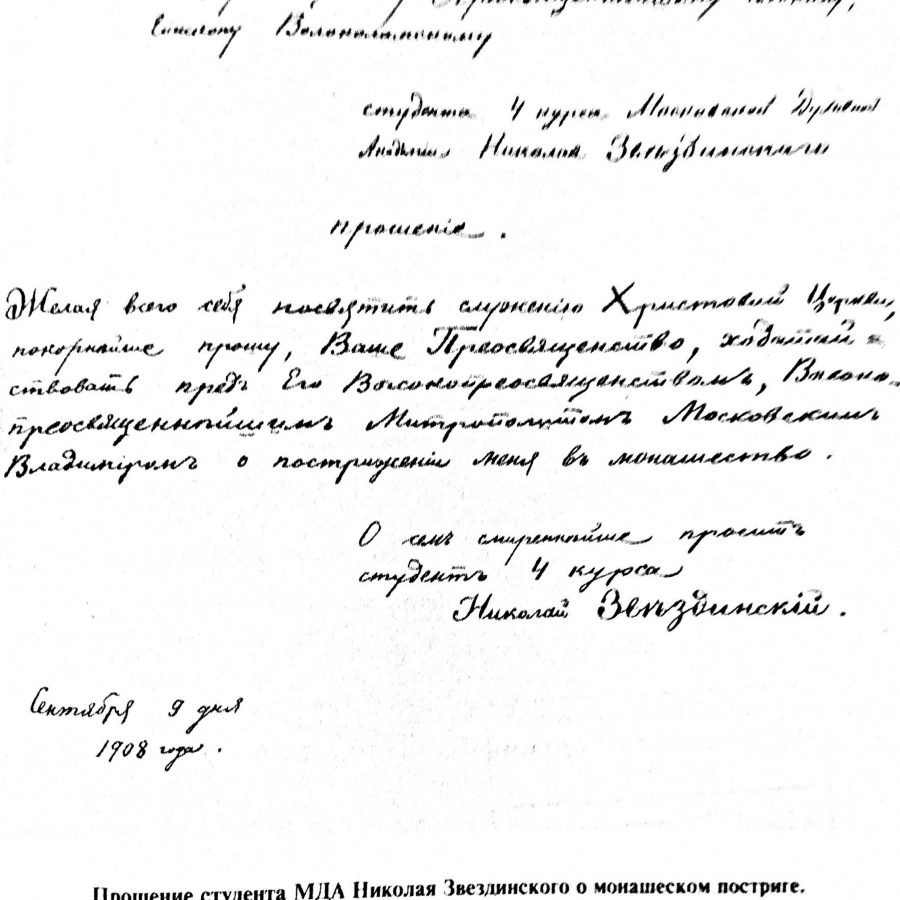 Епископу Волоколамскому
студента 4 курса Московской Духовной
Академіи Николая Звѣздинскаго
прошеніе.
Желая всего себя посвятить служенію Христовой Церкви,
покорнѣйше прошу, Ваше Преосвященство, ходатай-
ствовать предъ Его Высокопреосвященствомъ, Высоко-
преосвященнѣйшимъ Митрополитомъ Московскимъ
Владиміромъ о постриженіи меня въ монашество.
О семъ смиреннѣйше проситъ
студентъ 4 курса
Николай Звѣздинскій.
Сентября 9 дня
1908 года.
Прошение студента МДА Николая Звездинского о монашеском постриге.